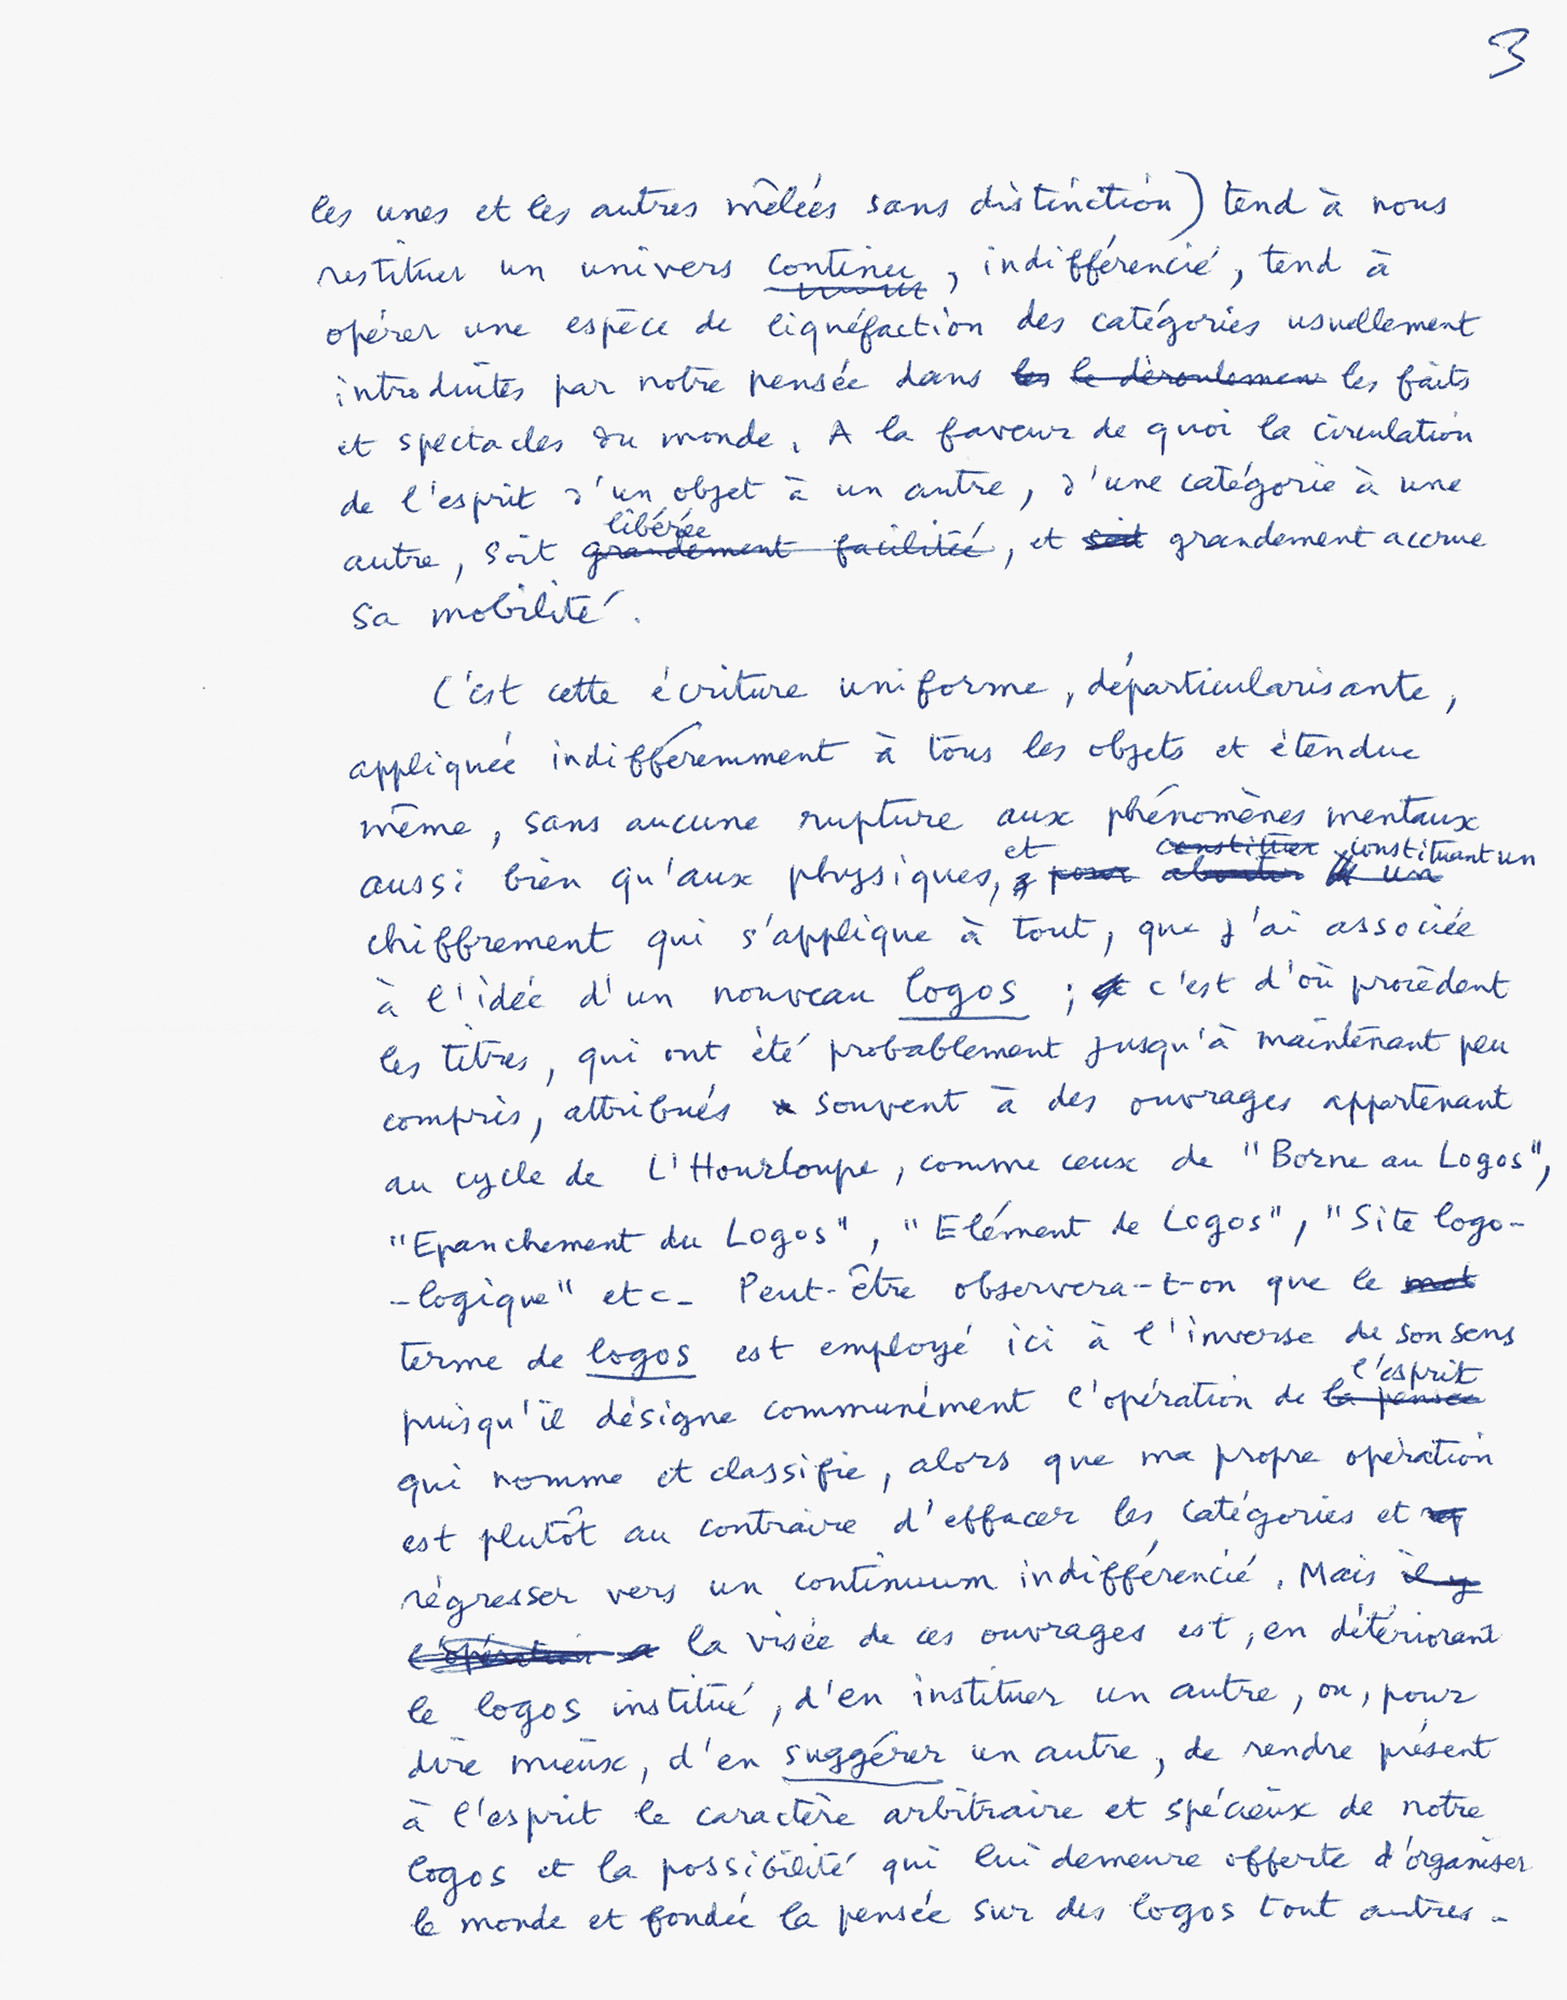 3
les unes et les autres mêlées sans distinction) tend à nous
restituer un univers continu, indifférencié, tend à
opérer une espèce de liquéfaction des catégories usuellement
introduites par notre pensée dans les le déroulemen les faits
et spectacles du monde. A la faveur de quoi la circulation
de l'esprit d'un objet à un autre, d'une catégorie à une
libérée
autre, soit grandement facilitée, et soit grandement accrue
sa mobilité.
C'est cette écriture uniforme, départicularisante,
appliquée indifféremment à tous les objets et étendue
même, sans aucune rupture aux phénomènes mentaux
et constituer constituant un
aussi bien qu'aux physiques, pour aboutir un
chiffrement qui s'applique à tout, que j'ai associée
à l'idée d'un nouveau logos ; c'est d'où procèdent
les titres, qui ont été probablement jusqu'à maintenant peu
compris, attribués souvent à des ouvrages appartenant
au cycle de L'Hourloupe, comme ceux de "Borne au Logos",
"Epanchement du Logos", "Elément de Logos", "Site logo-
-logique" etc- Peut-être observera-t-on que le mot
terme de logos est employé ici à l'inverse de son sens
l'esprit
puisqu'il désigne communément l'opération de la pensée
qui nomme et classifie, alors que ma propre opération
est plutôt au contraire d'effacer les catégories et
régresser vers un continuum indifférencié. Mais il y
l'opération a la visée de ces ouvrages est, en détériorant
le logos institué, d'en instituer un autre, ou, pour
dire mieux, d'en suggérer un autre, de rendre présent
à l'esprit le caractère arbitraire et spécieux de notre
logos et la possibilité qui lui demeure offerte d'organiser
le monde et fondée la pensée sur des logos tout autres-